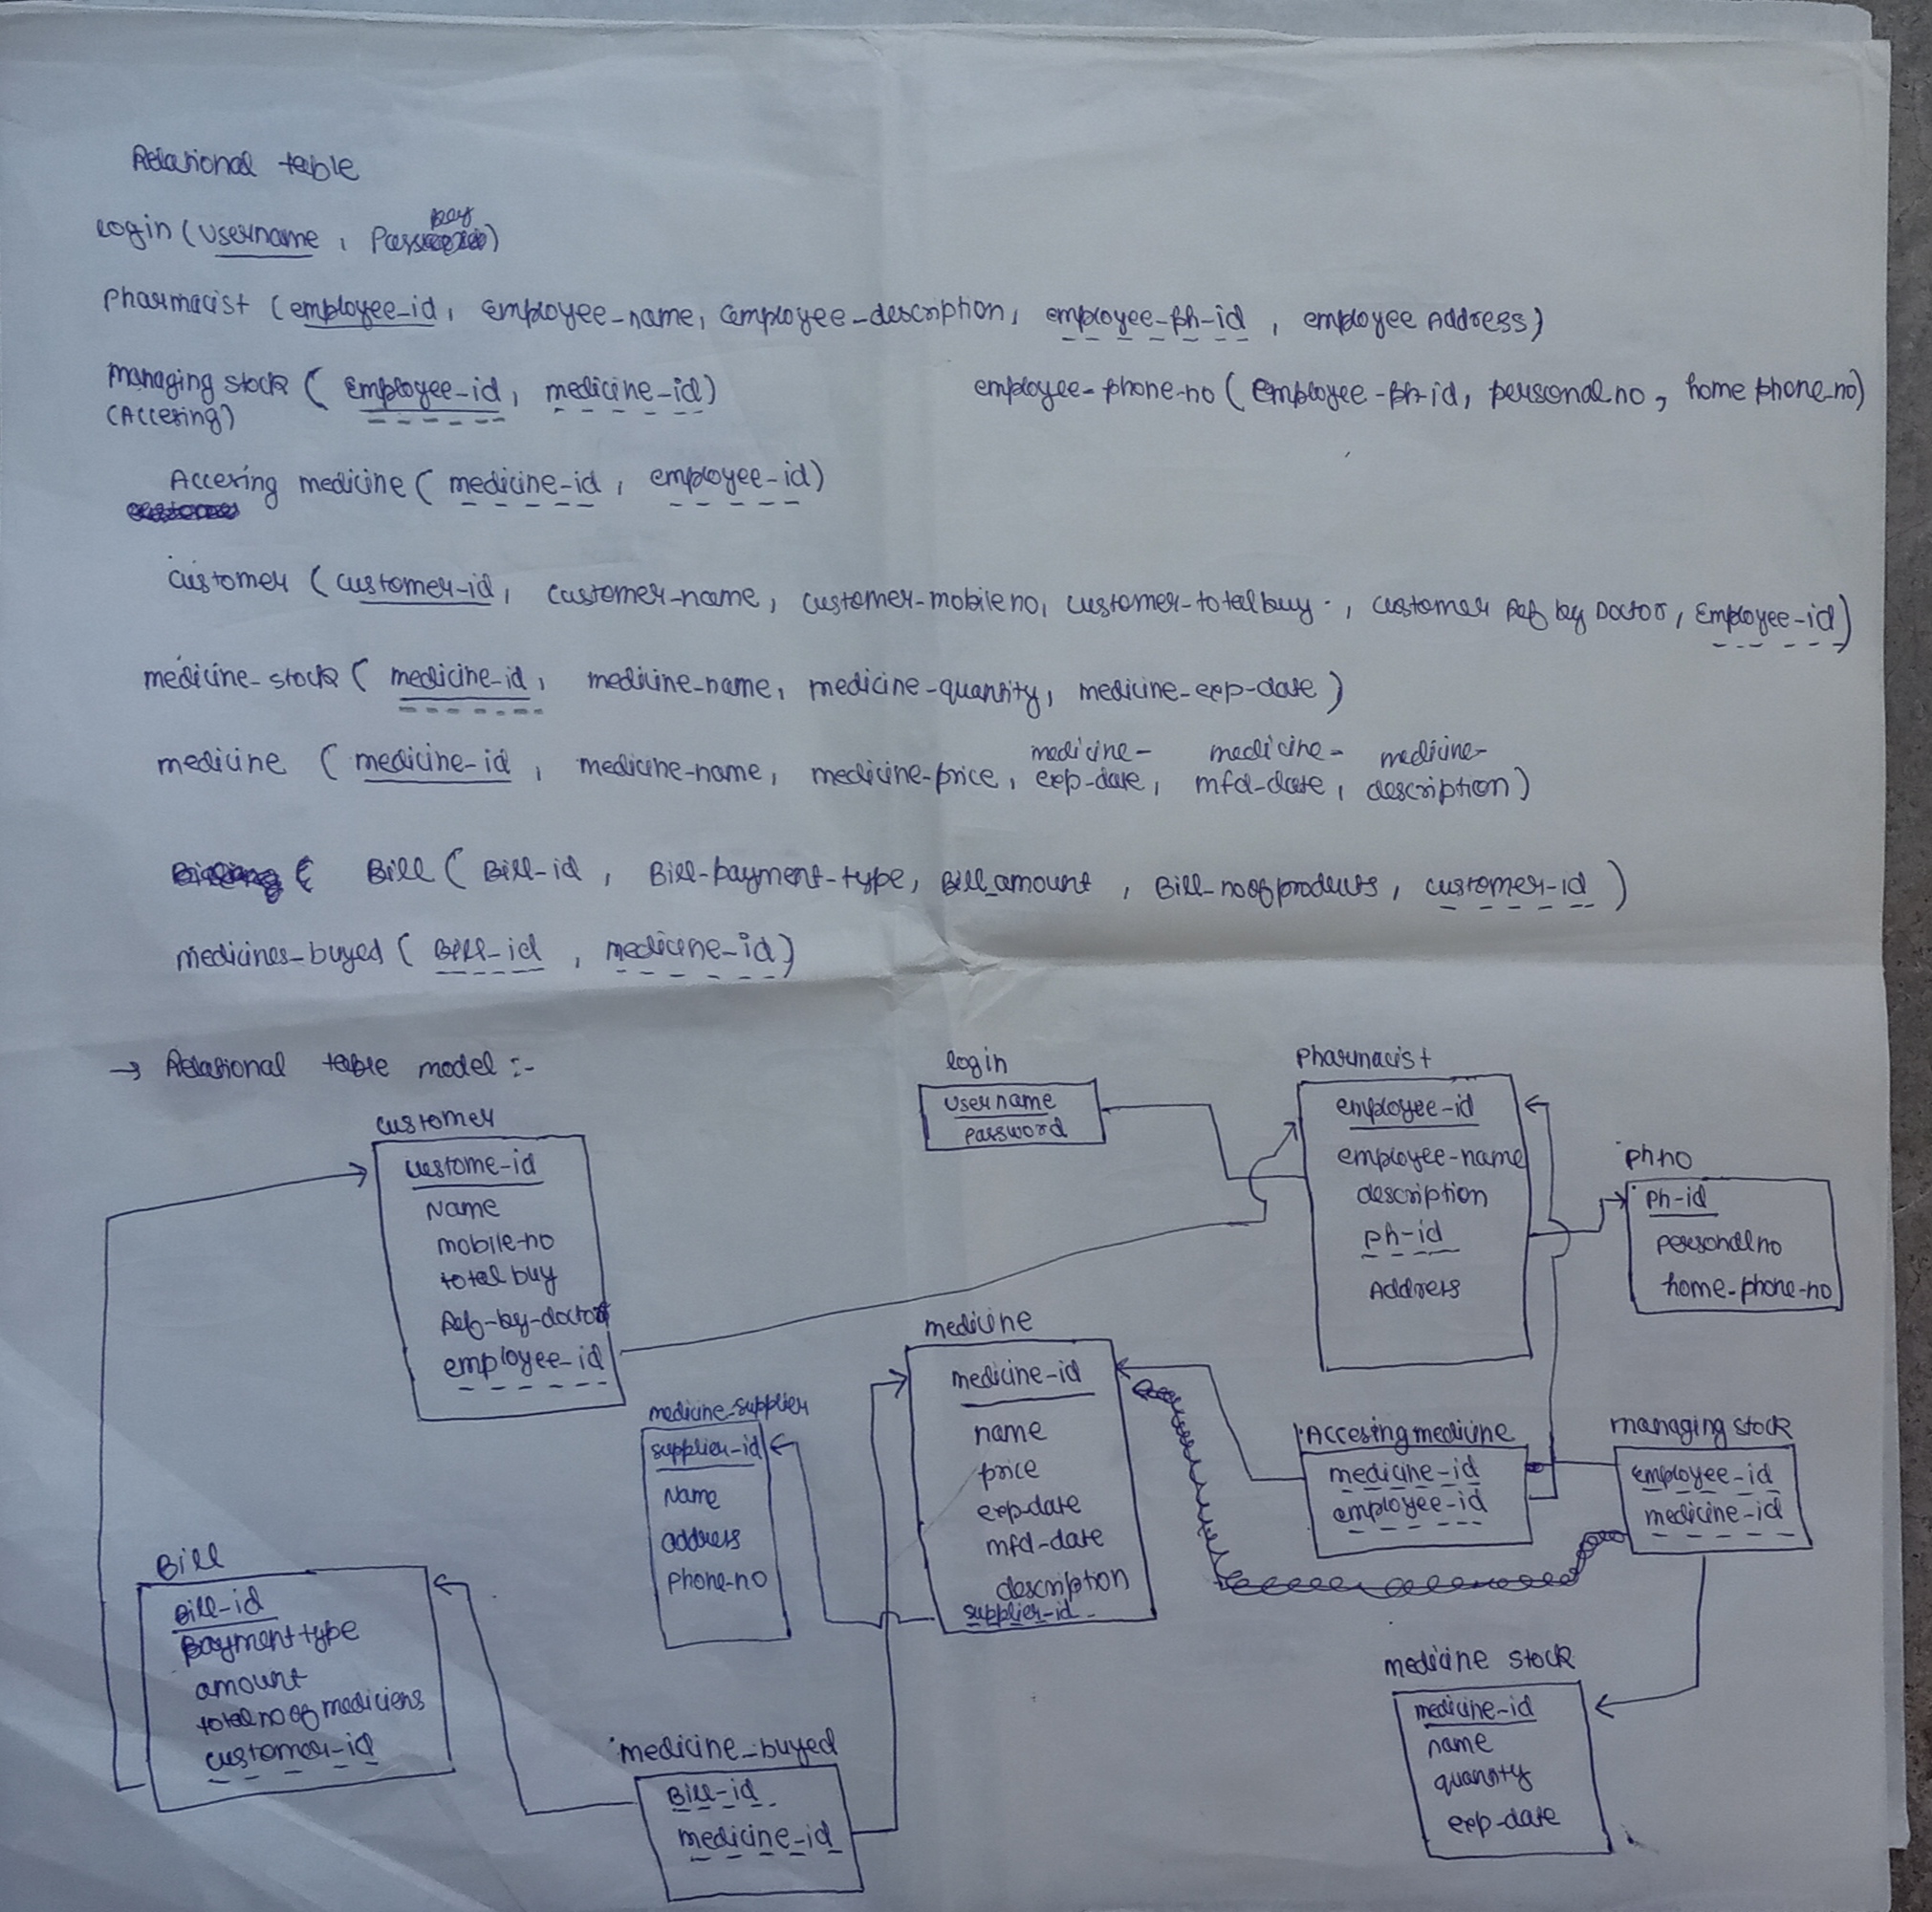 Relational table
login (username, Pass key)
Pharmacist (employee-id, employee-name, employee-description, employee-ph-id, employee Address)
managing stock ( Employee-id, medicine-id)
(Accering)
employee-phone-no ( Employee-ph-id, personal.no, home phone-no)
Accering medicine ( medicine-id, employee-id)
customer ( customer-id, customer-name, customer-mobile no, customer-total buy ., customer Ref by Doctor, Employee-id)
medicine-stock ( medicine-id, medicine-name, medicine-quantity, medicine-exp-date )
medicine ( medicine-id, medicine-name, medicine-price, medicine-exp-date, medicine-mfd-date, medicine-description)
Bill ( Bill-id, Bill-payment-type, Bill_amount, Bill-no of products, customer-id )
medicines-buyed ( Bill-id, medicine-id)
→ Relational table model :-
login
username
password
Pharmacist
employee-id
employee-name
description
ph-id
Address
ph no
Ph-id
personal no
home-phone-no
customer
custome-id
Name
mobile-no
total buy
Ref-by-doctor
employee-id
medicine-supplier
supplier-id
Name
address
phone-no
medicine
medicine-id
name
price
exp-date
mfd-date
description
supplier-id
Accesing medicine
medicine-id
employee-id
managing stock
Employee-id
medicine-id
Bill
Bill-id
payment type
amount
total no of mediciens
customer-id
medicine-buyed
Bill-id
medicine-id
medicine stock
medicine-id
name
quantity
exp-date